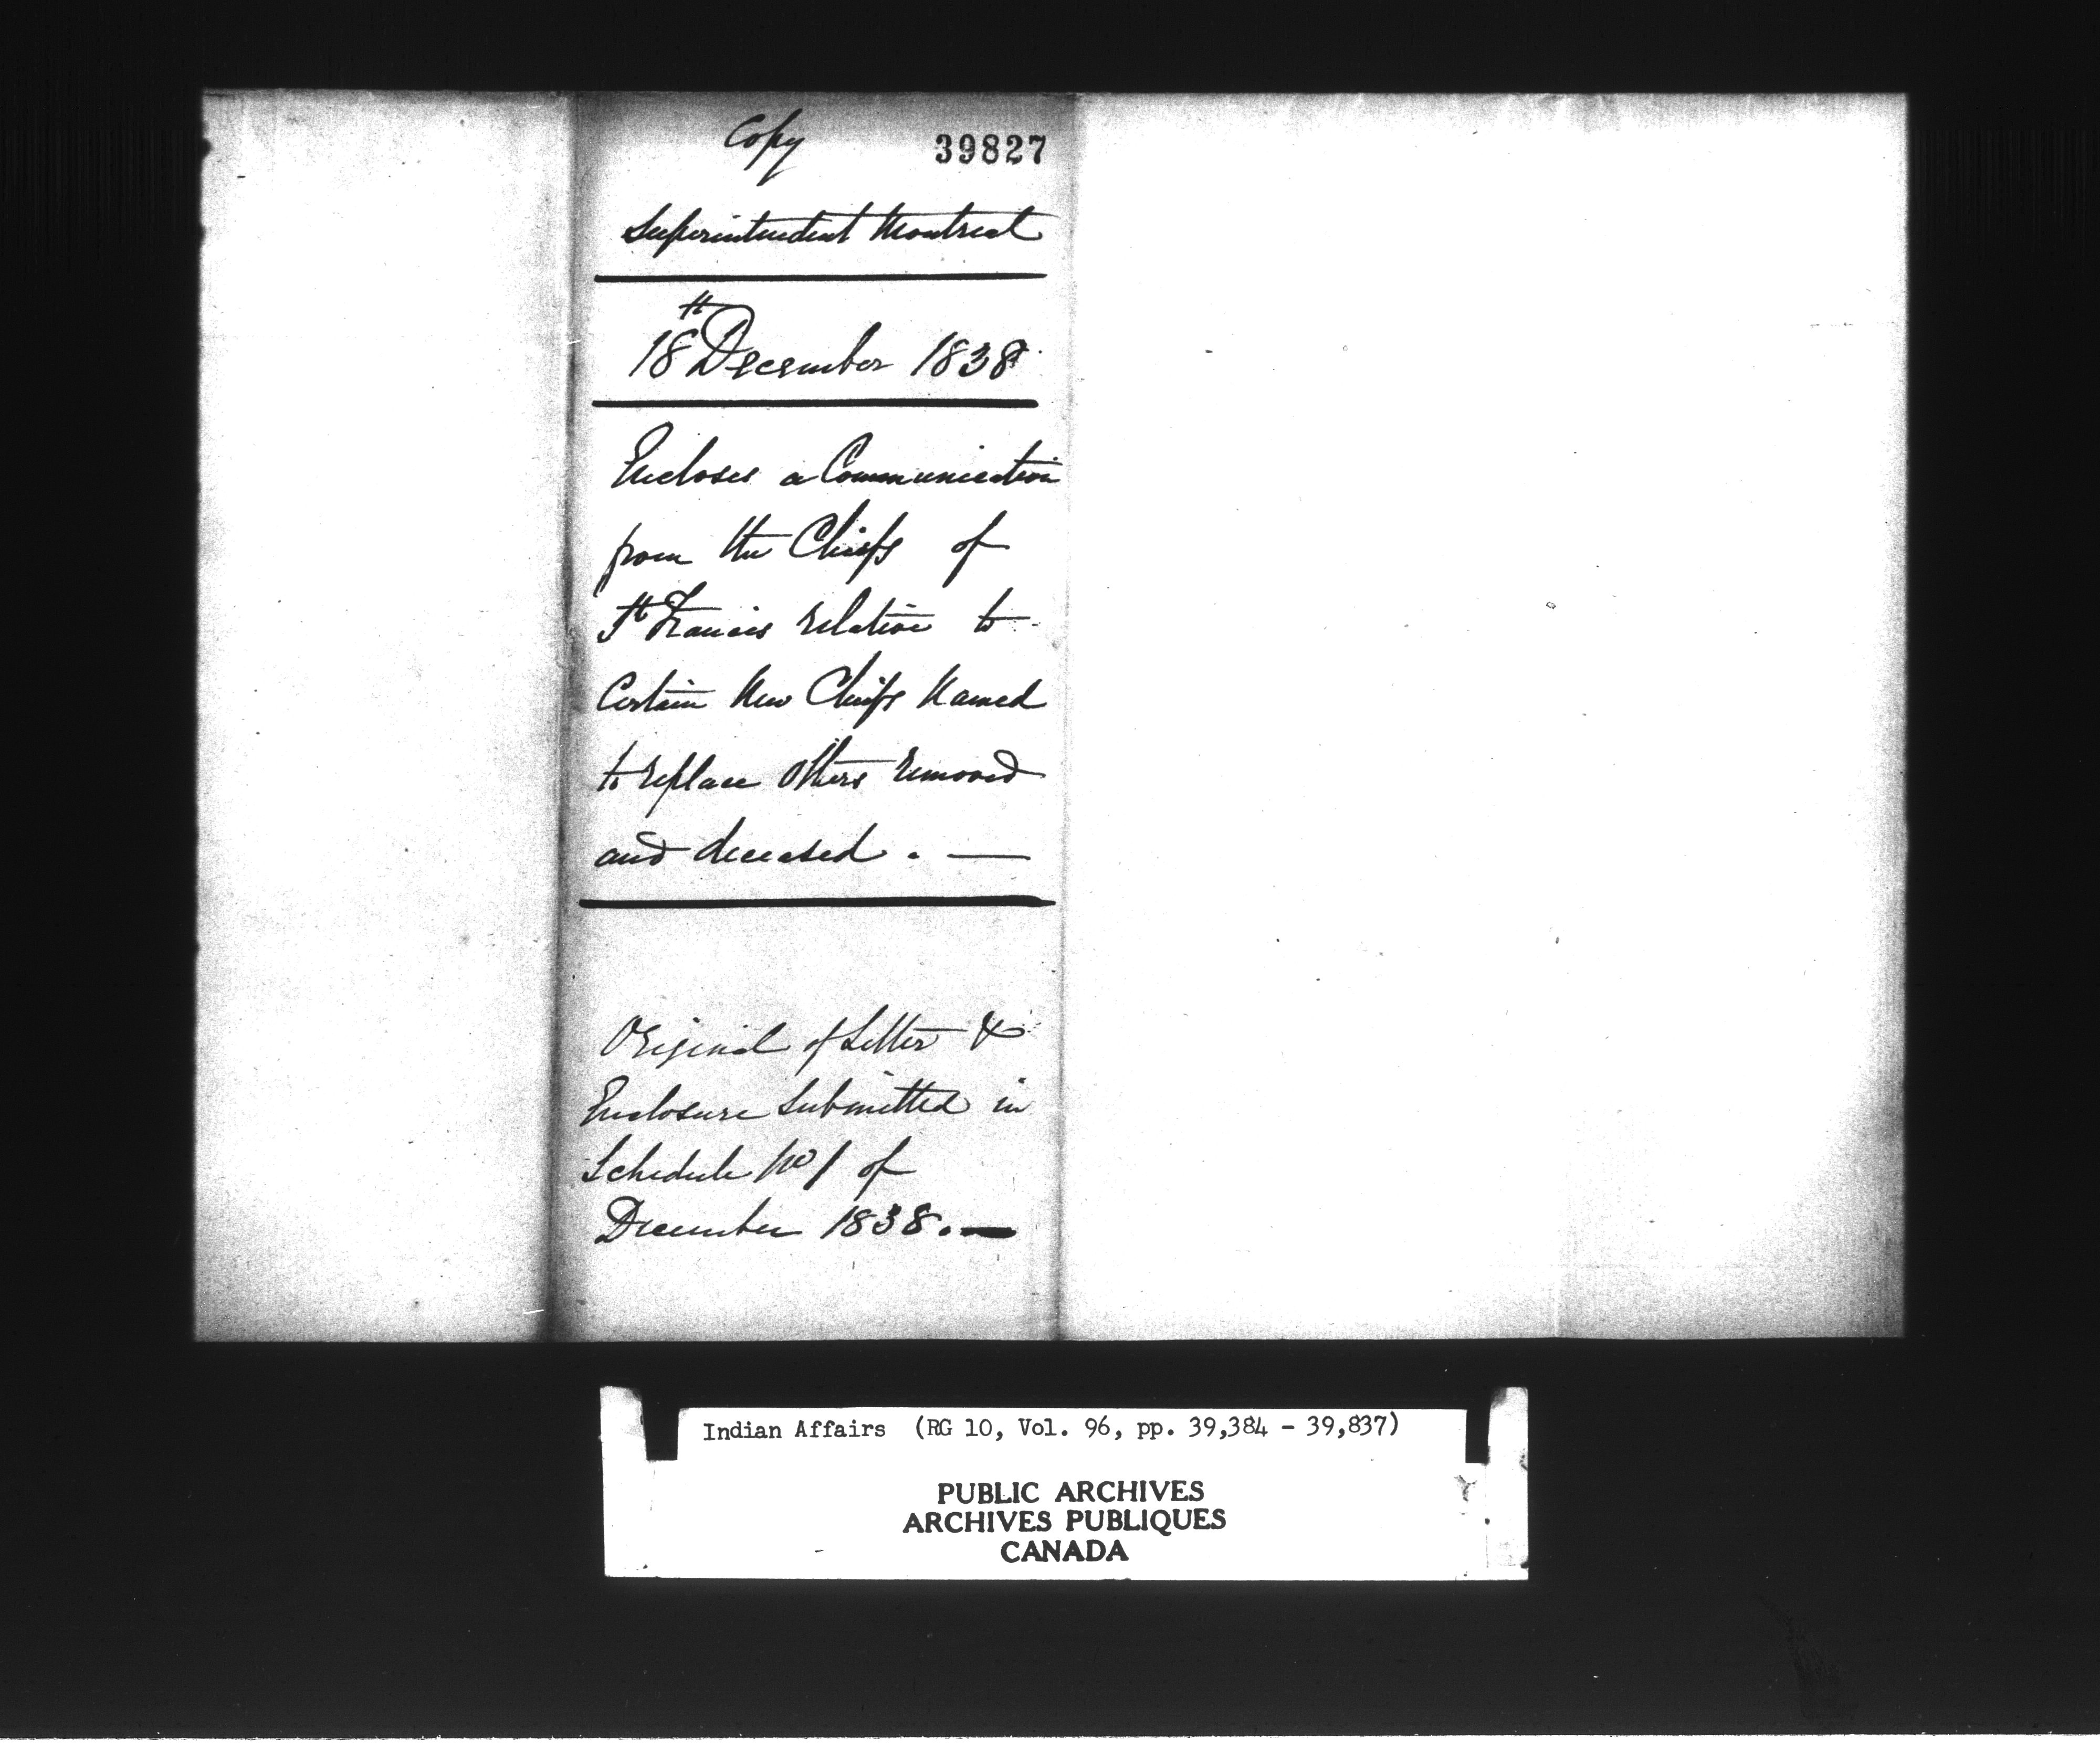 Copy 39827
Superintendent Montreal
18th December 1838
Encloses a Communication
from the Chiefs of
St Francis relative to
Certain New Chiefs Named
to replace Others removed
and deceased. —
Original of Letter &
Enclosure Submitted in
Schedule No 1 of
December 1838. —
Indian Affairs (RG 10, Vol. 96, pp. 39,384 - 39,837)
PUBLIC ARCHIVES
ARCHIVES PUBLIQUES
CANADA